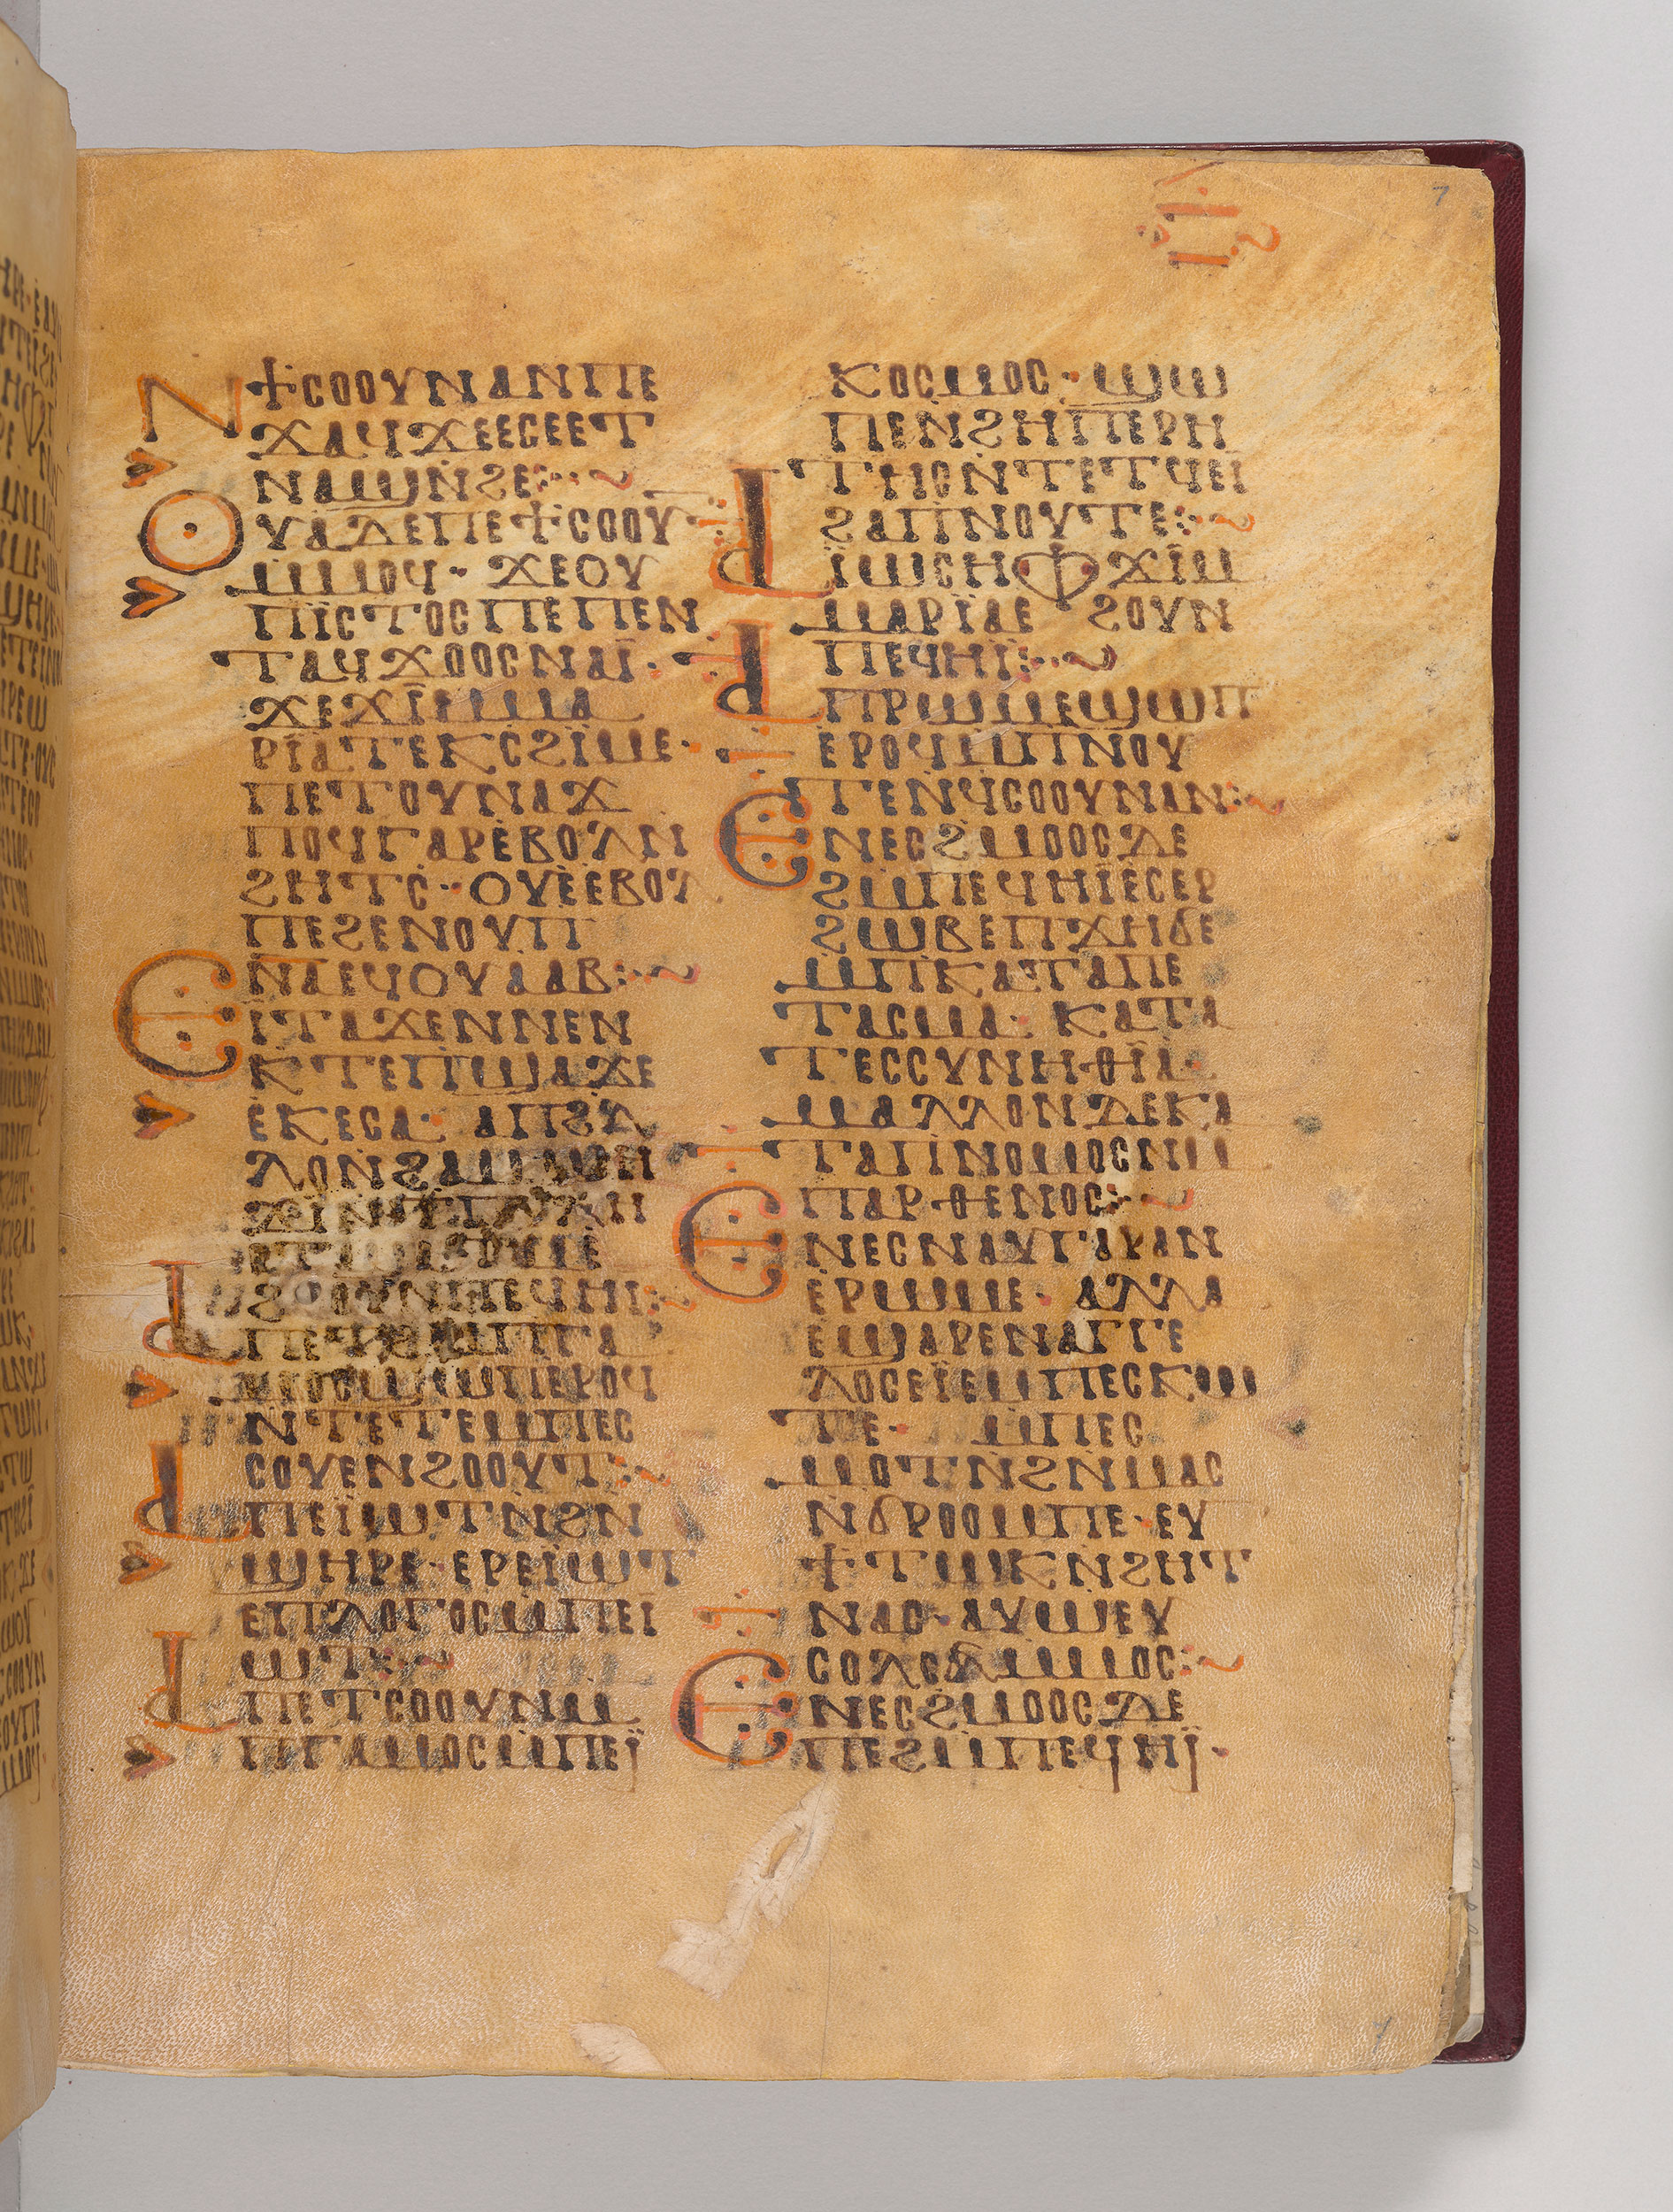 7
Ⲛϯⲥⲟⲟⲩⲛⲁⲛⲡⲉ
ϫⲁϥϫⲉⲉⲥⲉⲉⲧ
ⲛⲁϣⲛ̀ϩⲉ:·~
ⲟⲩⲁⲇⲉⲡⲉϯⲥⲟⲟⲩⲛ̅
ⲙⲙⲟϥ· ϫⲉⲟⲩ
ⲡⲓⲥⲧⲟⲥⲡⲉⲡⲉⲛ
ⲧⲁϥϫⲟⲟⲥⲛⲁⲓ̈·
ϫⲉϫⲓ̈ⲙⲙⲁ
ⲣⲓ̈ⲁⲧⲉⲕⲥϩⲓ̈ⲙⲉ·
ⲡⲉⲧⲟⲩⲛⲁϫ
ⲡⲟϥⲅⲁⲣⲉ̀ⲃⲟⲗⲛ
ϩⲏⲧⲥ̀·· ⲟⲩⲉ̀ⲉⲃⲟⲗ
ⲡⲉϩⲉⲛⲟⲩⲡⲛ̅
ⲛ̅ⲁⲉϥⲟⲩⲁⲁⲃ:·~
ⲉⲓⲧⲁϫⲉⲛⲛⲉⲛ
ⲕⲧⲉⲡϣⲁϫⲉ
ⲉ̀ⲕⲉⲥⲁ· ⲁⲡϩⲗ̅
ⲗⲟⲛ̀ϩⲁⲙϣⲏ
ϩⲟⲩⲛⲡⲉϥⲏⲓ:~
ⲙⲟⲥϣⲱⲡⲉⲣⲟϥ
ⲛ̀ⲧⲉⲧⲉⲙⲡⲉⲥ
ⲥⲟⲩⲉⲛϩⲟⲟⲩⲧ:~
ⲡⲡⲉⲓ̈ⲱⲧⲛ̀ϩⲛ̀
ϣⲏⲣⲉ·ⲉⲣⲉⲓ̈ⲱⲧ
ⲉⲡⲗⲟⲅⲟⲥⲙⲡⲉⲓ̈
ⲱⲧ:·~
ⲡⲡⲉⲧⲥⲟⲟⲩⲛⲙ
ⲡⲅⲁⲙⲟⲥⲙⲡⲉⲓ̈
ⲕⲟⲥⲙⲟⲥ· ϣⲱ
ⲡⲉⲛ̀ϩⲏⲡⲉⲣⲏ
ⲧⲏⲥⲛ̀ⲧⲉⲧϥⲉⲓ̈
ϩⲁⲡⲛⲟⲩⲧⲉ:~
ⲓ̈ⲱⲥⲏⲫϫⲓ̈ⲙ
ⲙⲁⲣⲓ̈ⲁⲉ ϩⲟⲩⲛ
ⲡⲉϥⲏⲓ̈:·~
ⲡⲡⲣⲱⲙⲉϣⲱⲡ
ⲉⲣⲟϥⲙⲡⲛⲟⲩ
ⲧⲉⲛ̀ϥⲥⲟⲟⲩⲛⲁⲛ:~
ⲉⲛⲉⲥϩⲙⲟⲟⲥⲇⲉ
ϩⲙⲡⲉϥⲏⲓ̈ⲉⲥⲉⲣ
ϩⲱⲃⲉⲡϫⲏϭⲉ
ⲙⲡⲕⲁⲧⲁⲡⲉ
ⲧⲁⲥⲙⲁ· ⲕⲁⲧⲁ
ⲧⲉⲥⲥⲩⲛⲏⲑⲓ̈ⲁ·
ⲙⲁⲗⲗⲟⲛⲇⲉⲕⲁ
ⲧⲁⲡⲛⲟⲙⲟⲥⲛⲙ
ⲡⲁⲣⲑⲉⲛⲟⲥ:·~
ⲉⲛⲉⲥⲛⲁⲩⲅⲁⲣⲁⲛ
ⲉ̀ⲣⲱⲙⲉ· ⲁⲗⲗⲁ
ⲉϣⲁⲣⲉⲛⲁⲅⲅⲉ
ⲗⲟⲥⲉⲓ̈ⲉⲙⲡⲉⲥⲕⲱ
ⲧⲉ· ⲙⲡⲉⲥ
ⲙⲟⲧⲛ̀ϩⲛ̀ⲙⲁⲥ
ⲛ̀ϭⲣⲟⲟⲙⲡⲉ·ⲉⲩ
ϯⲧⲱⲕⲛ̀ϩⲏⲧ
ⲛⲁⲥ· ⲁⲩⲱⲉⲩ
ⲥⲟⲗⲥⲗⲙⲙⲟⲥ:~
ⲉⲛⲉⲥϩⲙⲟⲟⲥⲇⲉ
ⲡⲉϩⲙⲡⲉϥⲏⲓ̈·